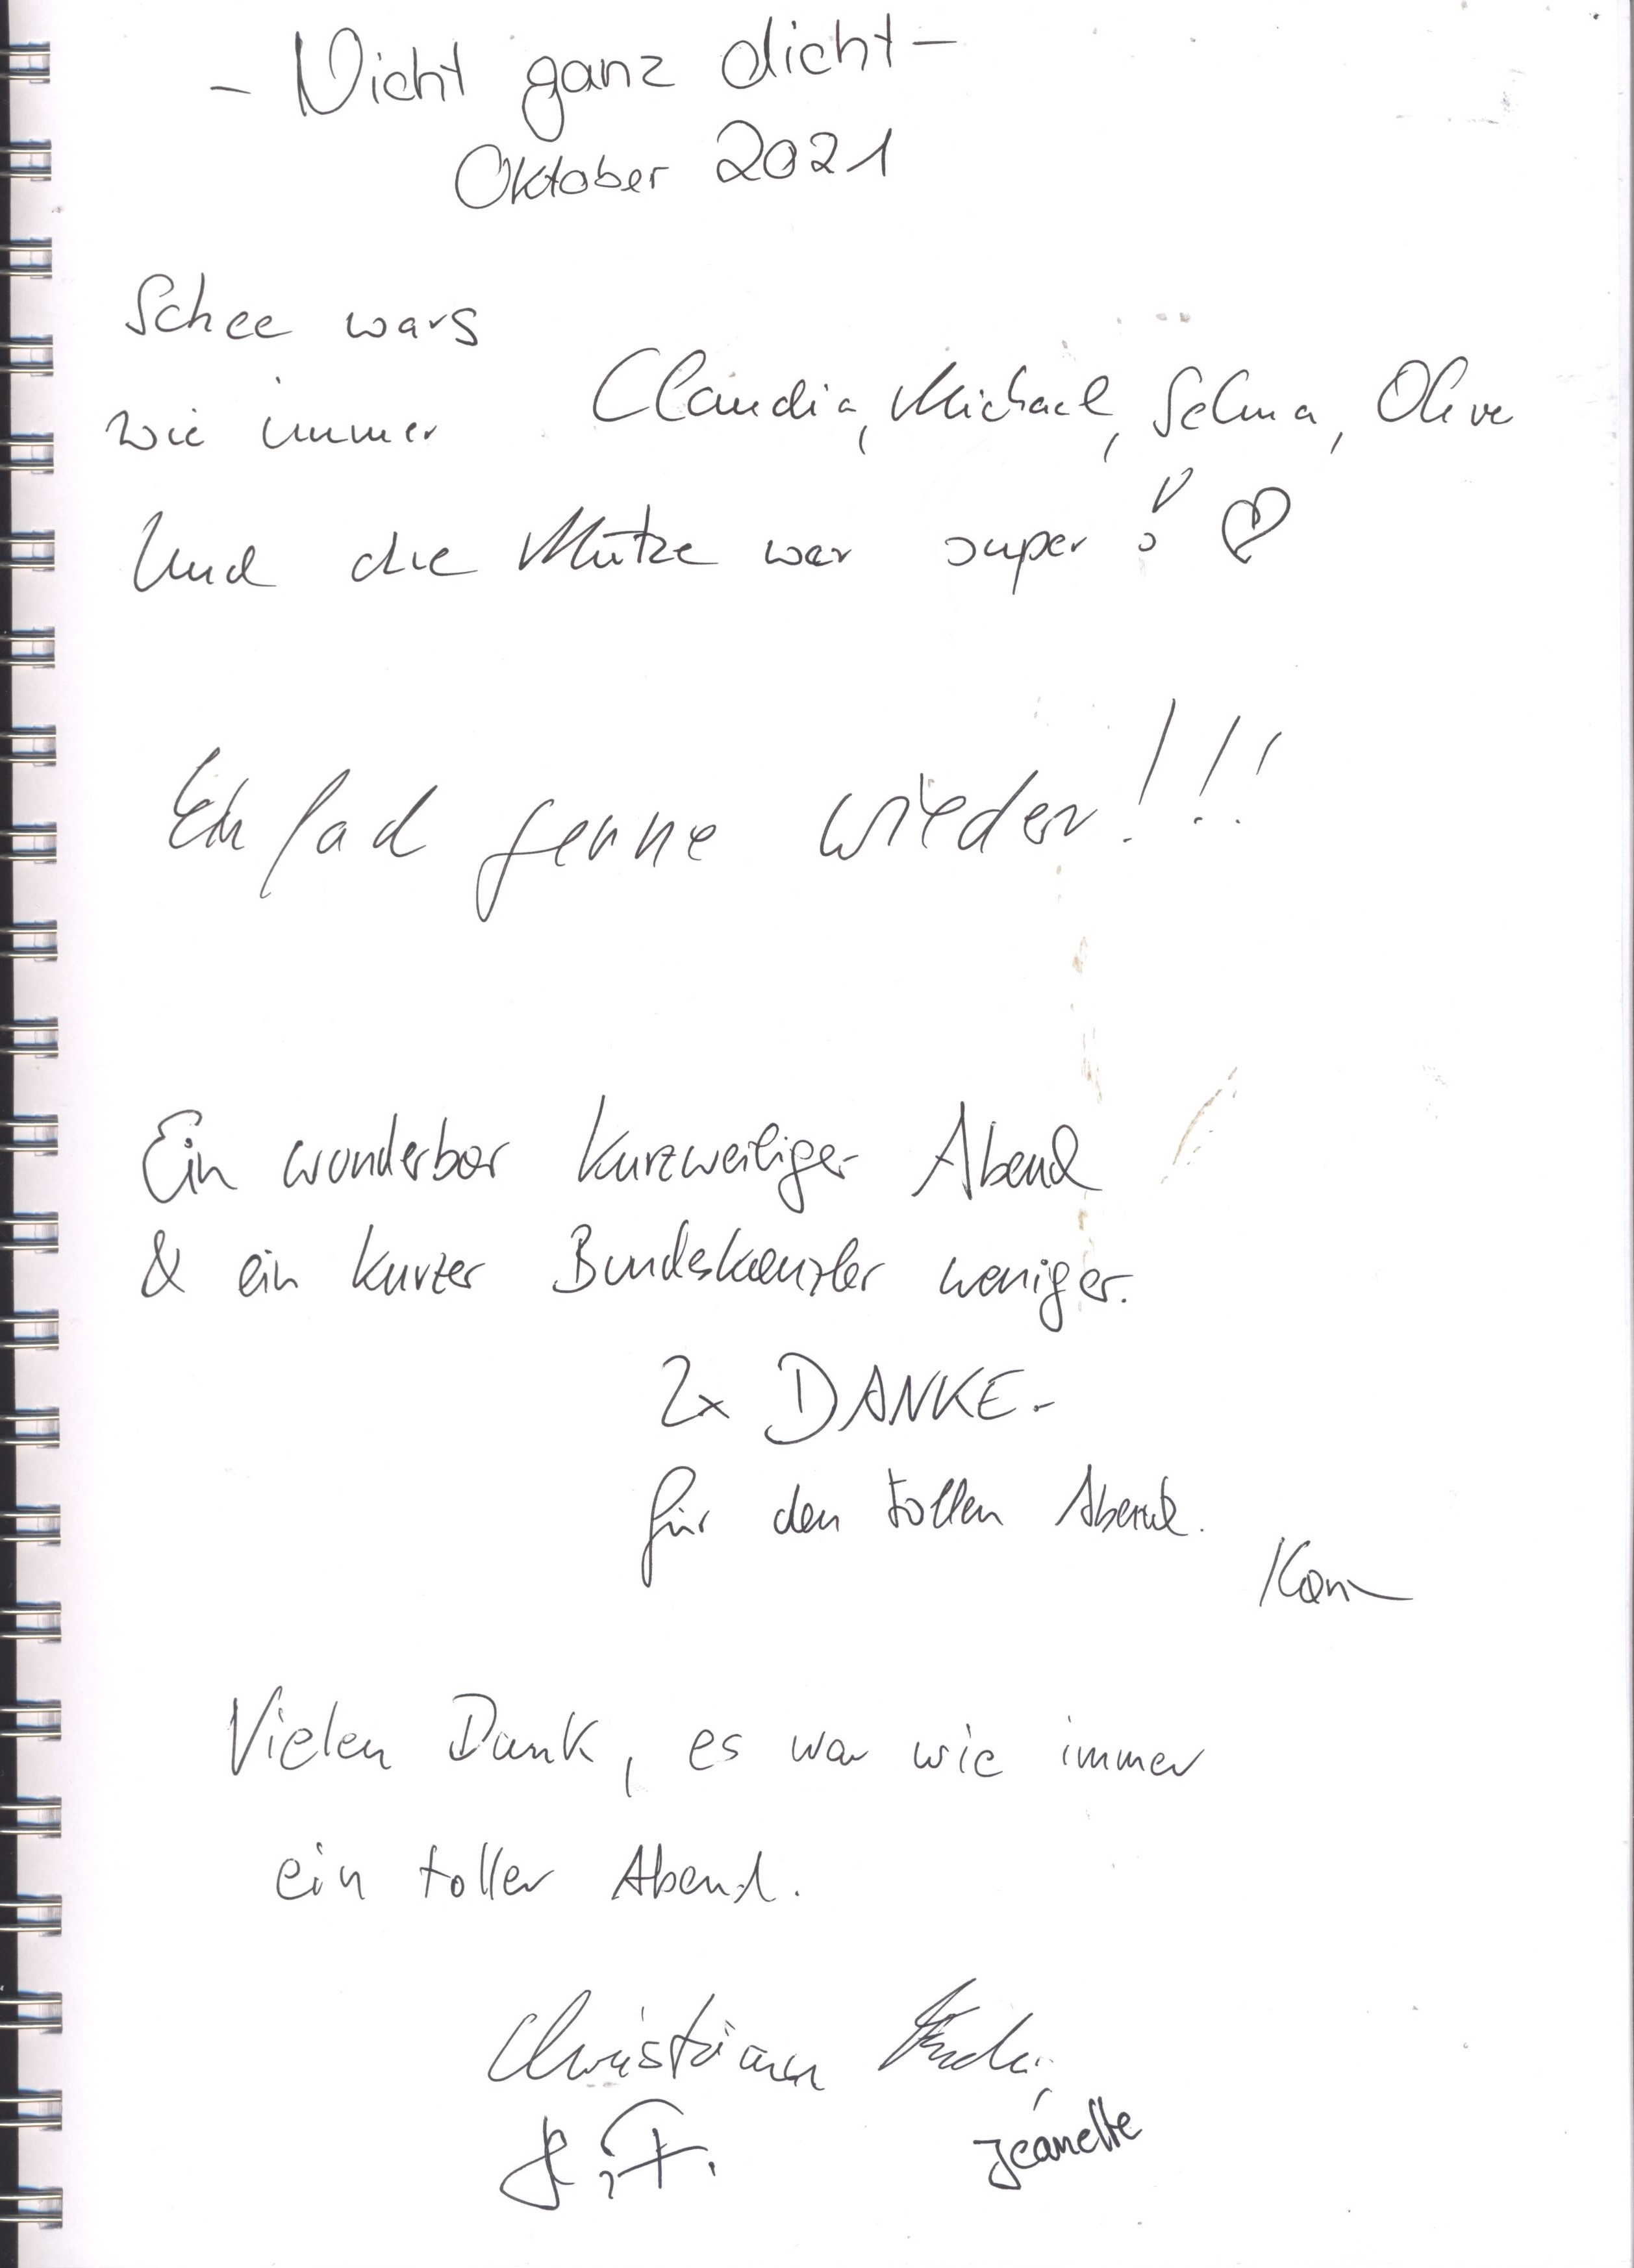 - Nicht ganz dicht -
Oktober 2021
Schee wars
wie immer Claudia, Michael, Selma, Olive
Und die Mütze war super!
Einfach gerne wieder!!!
Ein wunderbar kurzweiliger Abend
& ein kurzer Bundeskanzler weniger.
2x DANKE -
für den tollen Abend.
Vielen Dank, es war wie immer
ein toller Abend.
Christian
Jeanette